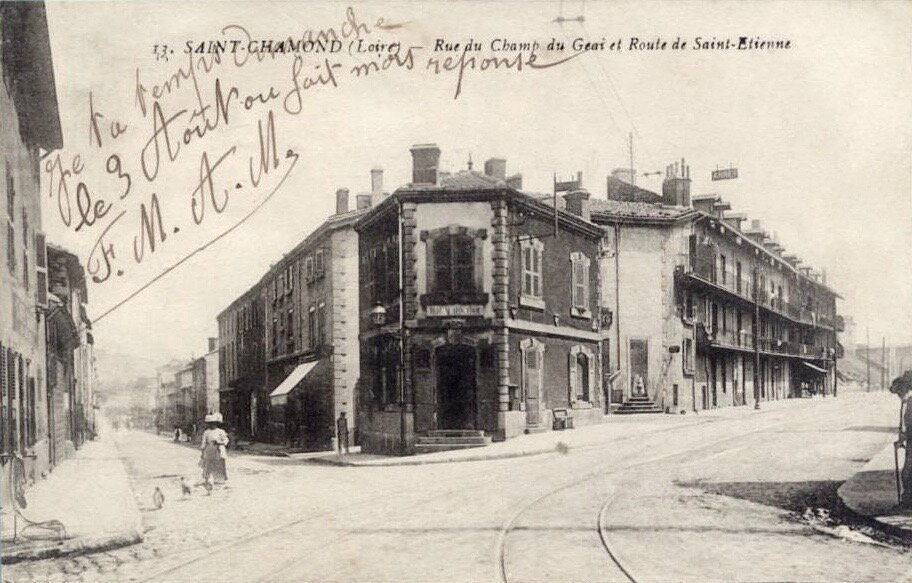 13. SAINT-CHAMOND (Loire) Rue du Champ du Geai et Route de Saint-Etienne
Je ta temps Dimanche
le 3 Août ou fait mors reponse
F. M. A. M.